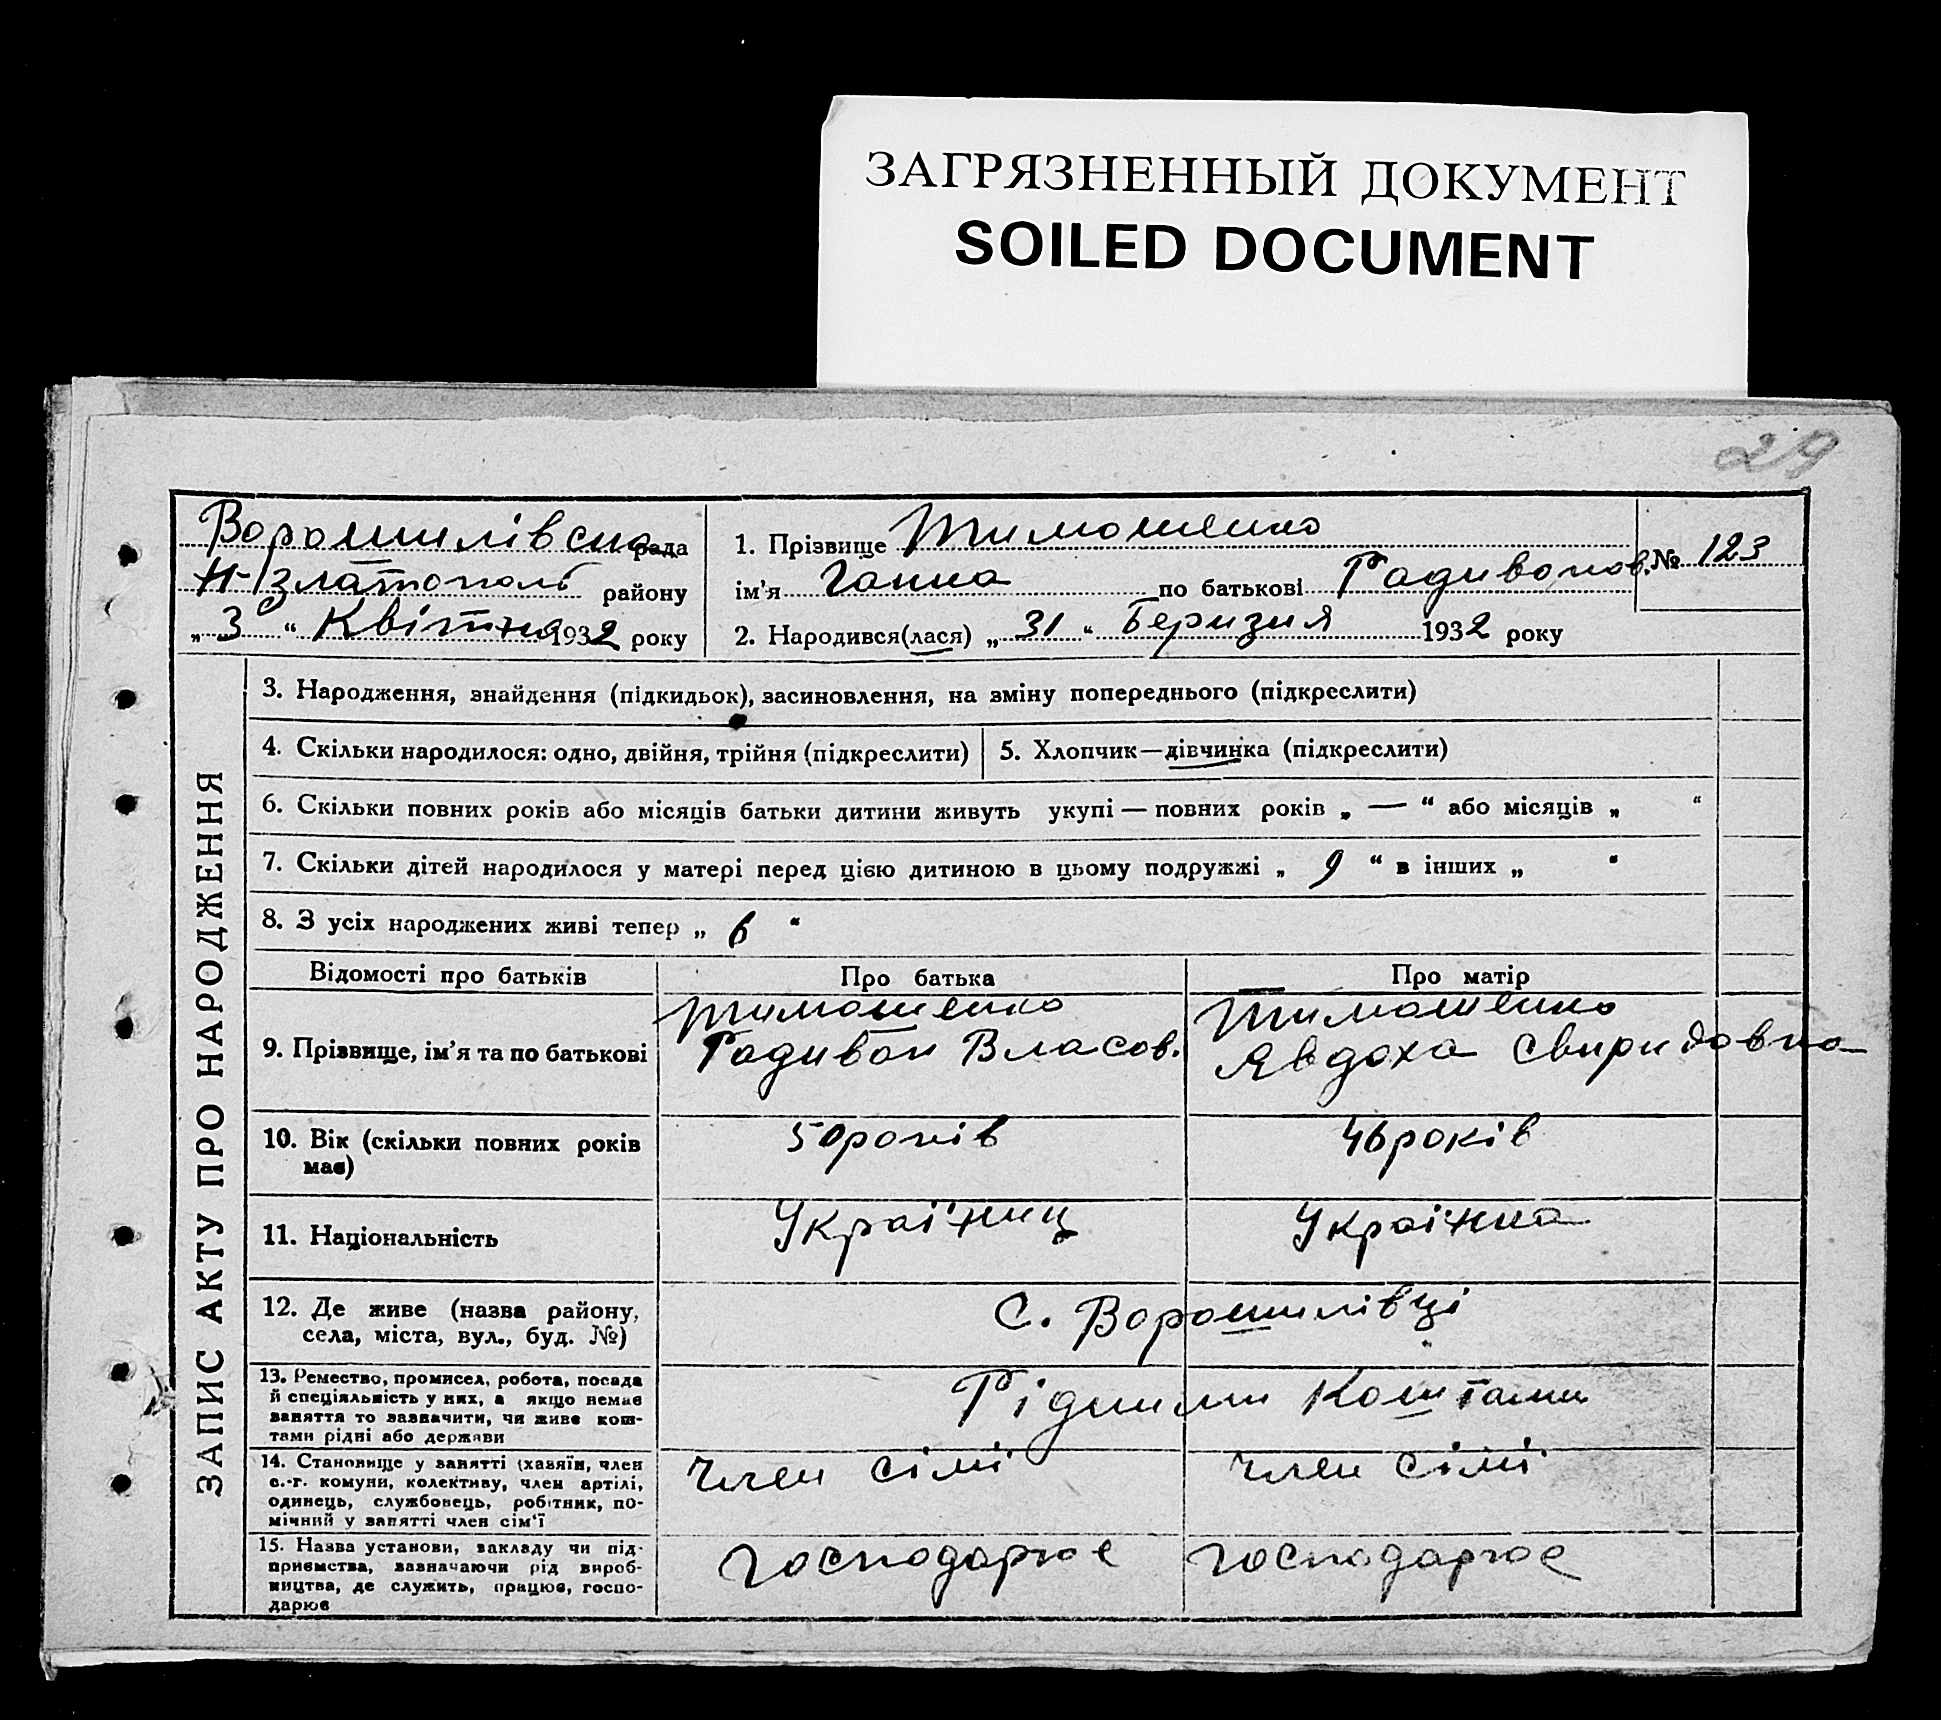 ЗАГРЯЗНЕННЫЙ ДОКУМЕНТ
SOILED DOCUMENT
29
Ворошилівська рада
Н-Златопол району
„ 3 “ Квітня 1932 року
1. Прізвище Тимошенко
ім’я Ганна по батькові Радивонов.
2. Народився(лася) „ 31 “ Березня 1932 року
№ 123
ЗАПИС АКТУ ПРО НАРОДЖЕННЯ
3. Народження, знайдення (підкидьок), засиновлення, на зміну попереднього (підкреслити)
4. Скільки народилося: одно, двійня, трійня (підкреслити)
5. Хлопчик—дівчинка (підкреслити)
6. Скільки повних років або місяців батьки дитини живуть укупі — повних років „ — “ або місяців „ “
7. Скільки дітей народилося у матері перед цією дитиною в цьому подружжі „ 9 “ в інших „ “
8. З усіх народжених живі тепер „ 6 “
Відомості про батьків
Про батька
Про матір
9. Прізвище, ім’я та по батькові
Тимошенко
Радивон Власов.
Тимошенко
Явдоха Свиридовна
10. Вік (скільки повних років
має)
50 років
46 років
11. Національність
Украіниц
Украінка
12. Де живе (назва району,
села, міста, вул., буд. №)
С. Ворошилівці
13. Ремество, промисел, робота, посада
й спеціяльність у них, а якщо немає
заняття то зазначити, чи живе кош-
тами рідні або держави
Рідними коштами
14. Становище у занятті (хазяїн, член
с.-г. комуни, колективу, член артілі,
одинець, службовець, робітник, по-
мічний у занятті член сім‘ї
член сімі
член сімі
15. Назва установи, закладу чи під-
приємства, зазначаючи рід вироб-
ництва, де служить, працює, госпо-
дарює
господарює
господарює